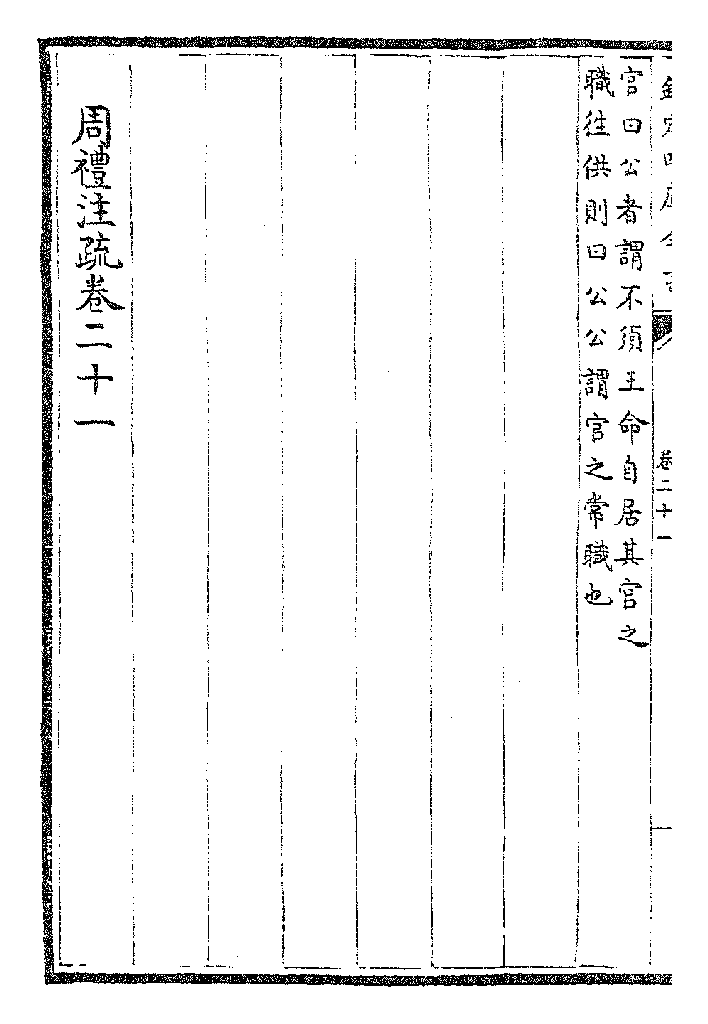 欽定四庫全書
卷二十一
官曰公者謂不須王命自居其官之
職往供則曰公公謂官之常職也
周禮注疏卷二十一